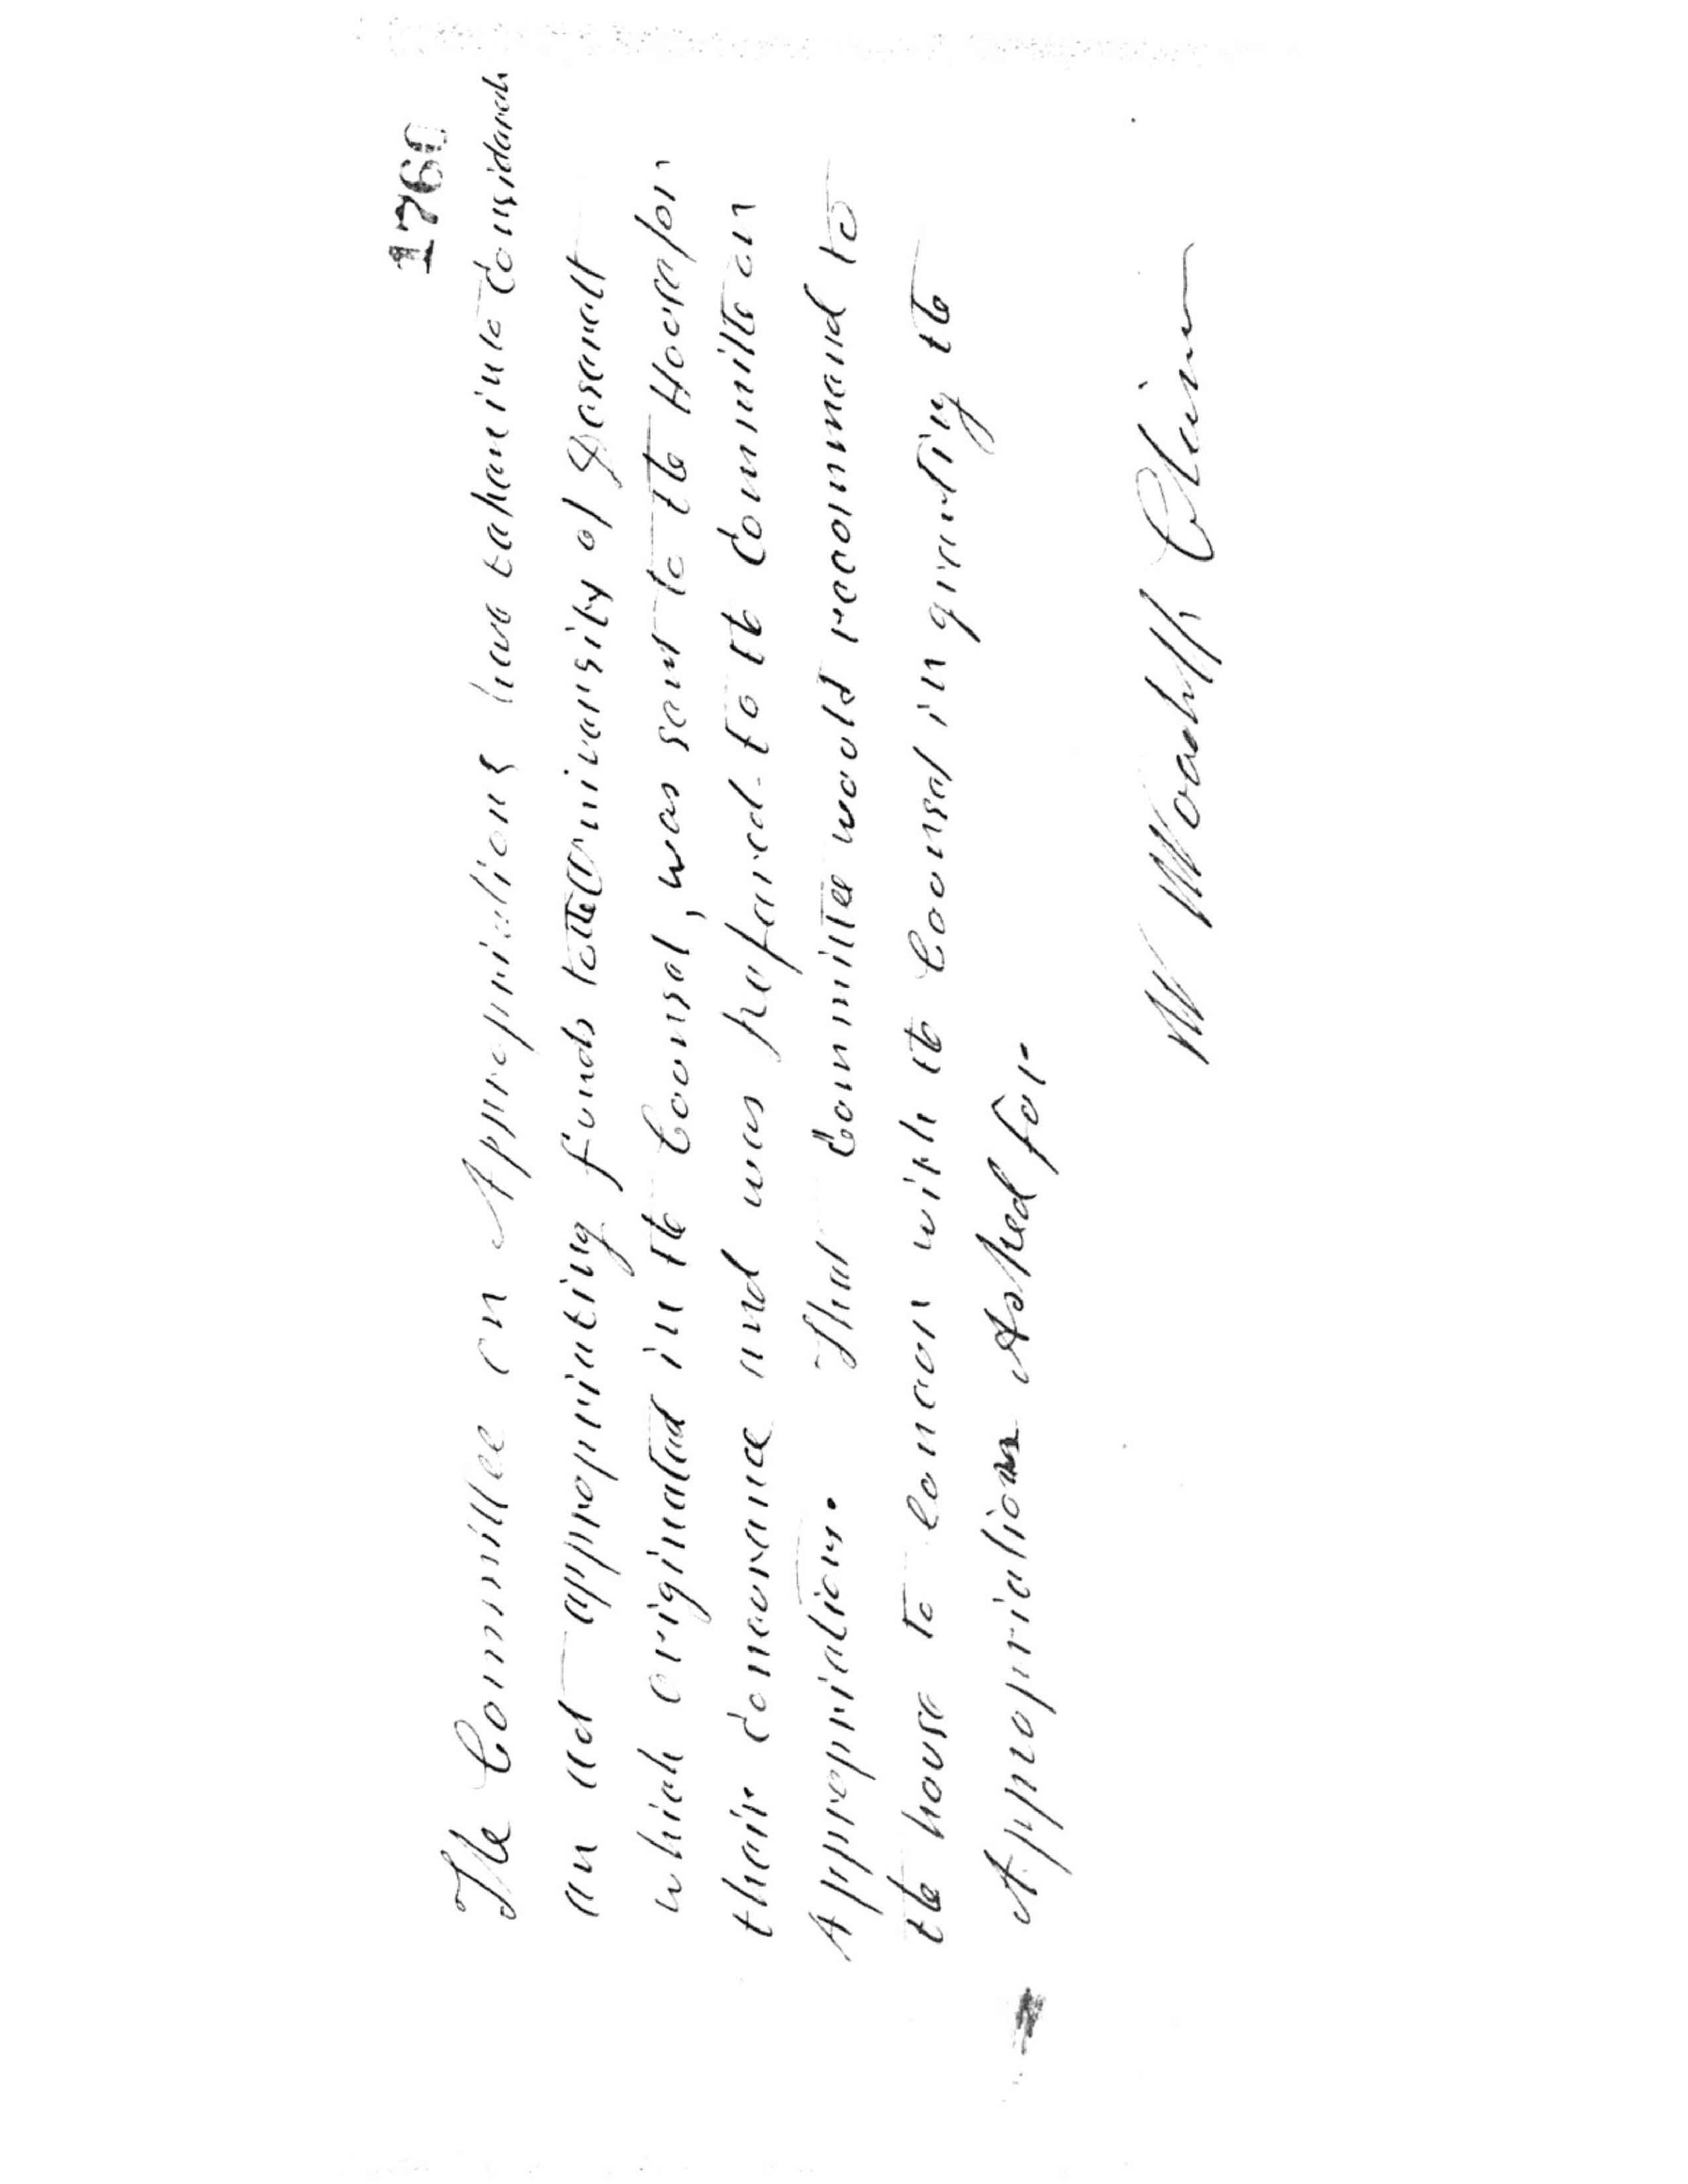 176
The Committee on Appropriations have taken into Considerah
an act appropriating funds to the University of Deserett
which originated in the Counsel, was sent to the House for
their concurance and was refared to the Committe on
Appropriations. That Committee would recommend to
the house to concur with the Counsel in granting the
Appropriation Asked for.
W Woodruff Chairm